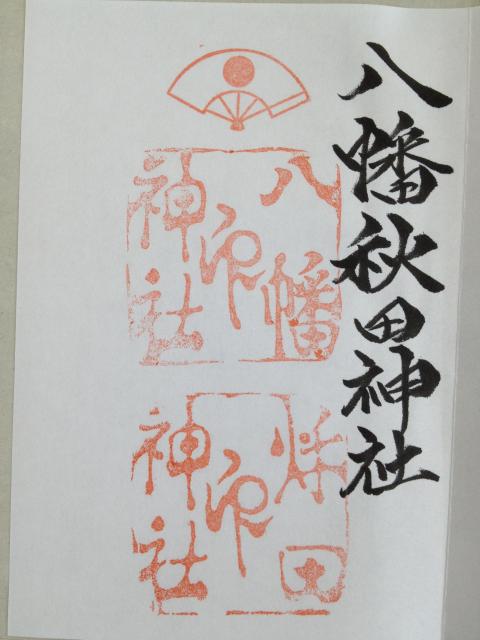 八幡秋田神社
八幡
神社
印
秌田
神社
印